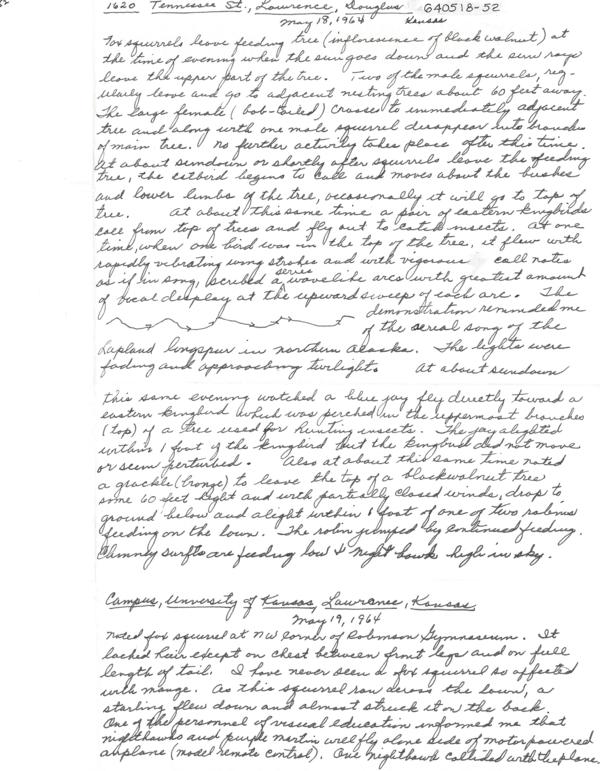 1620 Tennessee St., Lawrence, Douglas 640518-52
May 18, 1964 Kansas
Fox squirrels leave feeding tree (infloresence of black walnut) at
the time of evening when the sun goes down and the sun rays
leave the upper part of the tree. Two of the male squirrels, reg-
ularly leave and go to adjacent nesting trees about 60 feet away.
The large female (bob-tailed) crosses to immediately adjacent
tree and along with one male squirrel disappear into branches
of main tree. No further activity takes place after this time.
At about sundown or shortly after squirrels leave the feeding
tree, the catbird begins to call and moves about the bushes
and lower limbs of the tree, occasionally it will go to top of
tree. At about this same time a pair of eastern kingbirds
call from top of trees and fly out to catch insects. At one
time, when one bird was in the top of the trees, it flew with
rapidly vibrating wing strokes and with vigorous call notes
as if in song, scribed a series wavelike arcs with greatest amount
of vocal display at the upward sweep of each arc. The
demonstration reminded me
of the aerial song of the
Lapland longspur in northern Alaska. The lights were
fading and approaching twilight. At about sundown
this same evening watched a blue jay fly directly toward a
eastern kingbird which was perched in the uppermost branches
(top) of a tree used for hunting insects. The jay alighted
within 1 foot of the kingbird but the kingbird did not move
or seem perturbed. Also at about this same time noted
a grackle (bronze) to leave the top of a blackwalnut tree
some 60 feet hight and with partially closed winds, drop to
ground below and alight within 1 foot of one of two robins
feeding on the lawn. The robin jumped by continued feeding.
Chimney swifts are feeding low & night hawk high in sky.
Campus, University of Kansas, Lawrence, Kansas
May 19, 1964
Noted fox squirrel at NW corner of Robinson Gymnaseum. It
lacked hair except on chest between front legs and on full
length of tail. I have never seen a fox squirrel so affected
with mange. As this squirrel ran across the lawn, a
starling flew down and almost struck it on the back.
One of the personnel of visual education informed me that
nighthawks and purple martin will fly alone side of motor powered
airplane (model remote control). One nighthawk collided with the plane.